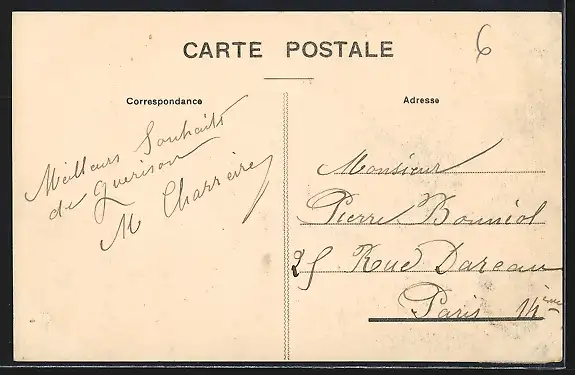 CARTE POSTALE
6
Correspondance
Meilleurs Souhaits
de Guérison
M Charreire
Adresse
Monsieur
Pierre Bonniol
25 Rue Dareau
Paris 14ème